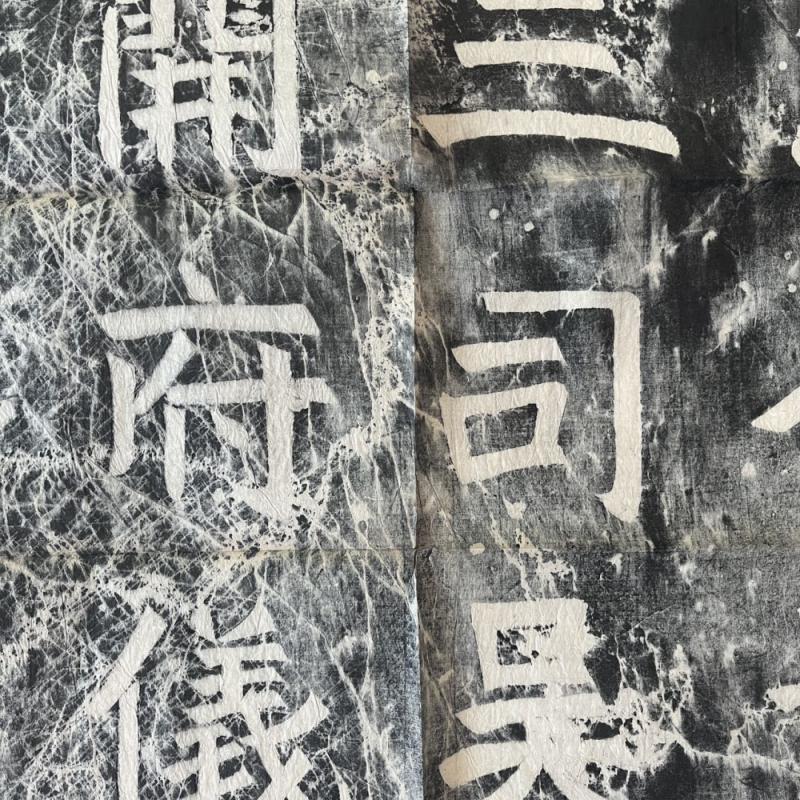 開府儀
三司吳